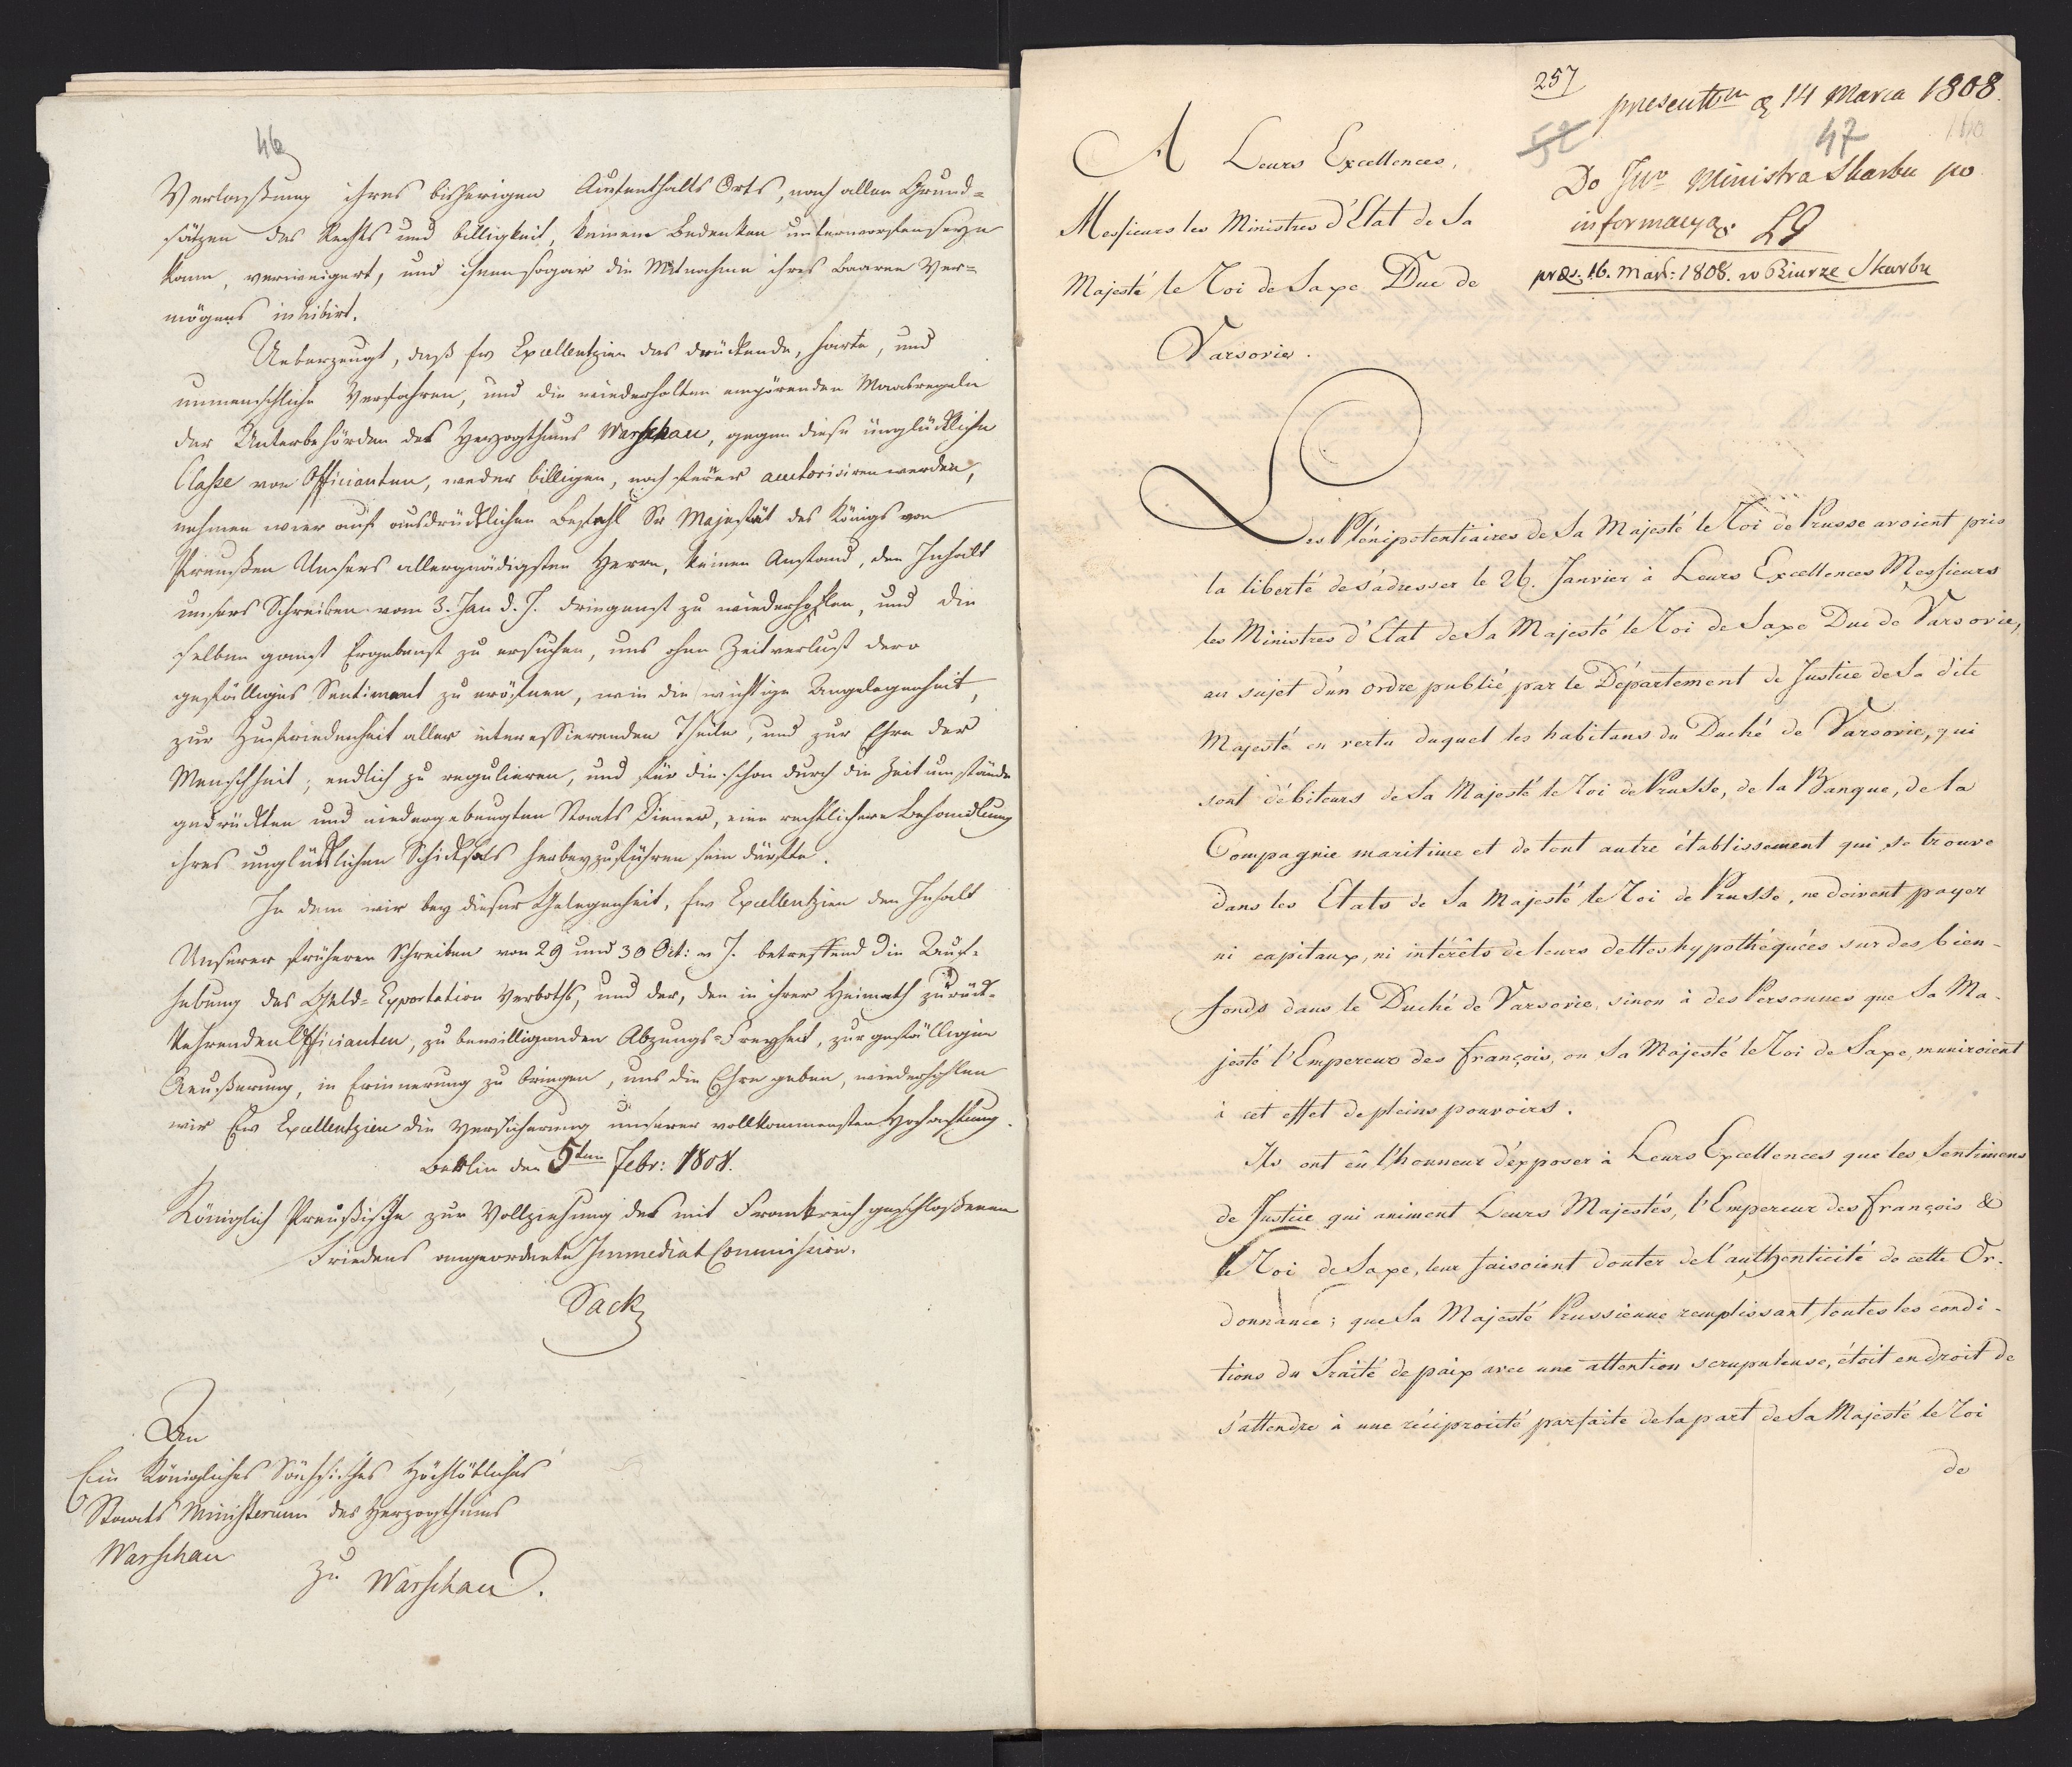 46
Verlaßung ihres bisherigen Aufenthalts Orts, nach allen Grund=
sätzen des Rechts und billigkeit, keinem Bedenken unterworfen seyn
kann, verweigert, und ihnen sogar die Mitnahme ihres baaren Ver=
mögens inhibirt.
Ueberzeugt, daß Ew Excellentzien das drückende, harte, und
unmenschliche Verfahren, und die wiederholten empörenden Maasregeln
der Unterbehörden des Herzogthums Warschau, gegen diese unglückliche
Classe von Officianten, weder billigen, noch ferner autorisiren werden,
nehmen wir auf ausdrücklichen Befehl Sr Majestät des Königs von
Preußen Unsers allergnädigsten Herrn, keinen Anstand, den Inhalt
unsers Schreiben vom 3. Jan d. J. dringenst zu wiederhohlen, und die
selben ganz Ergebenst zu ersuchen, uns ohne Zeitverlust dero
gefälliges Sentiment zu eröfnen, wie die wichtige Angelegenheit,
zur Zufriedenheit aller interessierenden Theile, und zur Ehre der
Menschheit, endlich zu regulieren, und für die schon durch die Zeitumstände
gedrückten und niedergebeugten Staats Diener, eine rechtlichere Behandlung
ihres unglücklichen Schicksals herbeyzuführen sein dürfte.
In dem wir bey dieser Gelegenheit, Ew Excellentzien den Inhalt
Unserer früheren Schreiben von 29 und 30 Oct: v J. betreffend die Auf=
hebung des Geld=Exportation Verboths, und der, den in ihrer Heimath zurück=
kehrenden Officianten, zu bewilligenden Abzungs=Freyheit, zur gefälligen
Aeußerung, in Erinnerung zu bringen, uns die Ehre geben, wiederhohlen
wir Ew Excellentzien die Versicherung unserer vollkommensten Hochachtung.
Berlin den 5ten Febr: 1808.
Königlich Preußische zur Vollziehung des mit Frankreich geschloßenen
Friedens angeordnete Immediat Commission.
Sack
An
Ein Königliches Sächsisches Höchlöbliches
Staats Ministerium des Herzogthums
Warschau
zu Warschau.
257
presenttm d 14 Marca 1808.
52
47
160
Do JWo Ministra Skarbu po
informacyą.
præs. 16. Mart: 1808. w Biurze Skarbu
A Leurs Excellences,
Messieurs les Ministres d'Etat de Sa
Majesté le Roi de Saxe Duc de
Varsovie.
Les Plénipotentiaires de Sa Majesté le Roi de Prusse avoient pris
la liberté de s'adresser le 26. Janvier à Leurs Excellences Messieurs
les Ministres d'Etat de Sa Majesté le Roi de Saxe Duc de Varsovie,
au sujet d'un ordre publié par le Département de Justice de Sa dite
Majesté en vertu duquel les habitans du Duché de Varsovie, qui
sont débiteurs de Sa Majesté le Roi de Prusse, de la Banque, de la
Compagnie maritime et de tout autre établissement qui se trouve
dans les Etats de Sa Majesté le Roi de Prusse, ne doivent payer
ni capitaux, ni intérêts de leurs dettes hypothéquées sur des bien-
fonds dans le Duché de Varsovie, sinon à des Personnes que Sa Ma-
jesté l'Empereur des françois, ou Sa Majesté le Roi de Saxe, muniroient
à cet effet de pleins pouvoirs.
Ils ont eû l'honneur d'exposer à Leurs Excellences que les Sentimens
de Justice qui animent Leurs Majestés, l'Empereur des françois &
le Roi de Saxe, leur faisoient douter de l'authenticité de cette Or-
donnance; que Sa Majesté Prussienne remplissant toutes les condi-
tions du Traité de paix avec une attention scrupuleuse, étoit en droit de
s'attendre à une réciprocité parfaite de la part de Sa Majesté le Roi
de